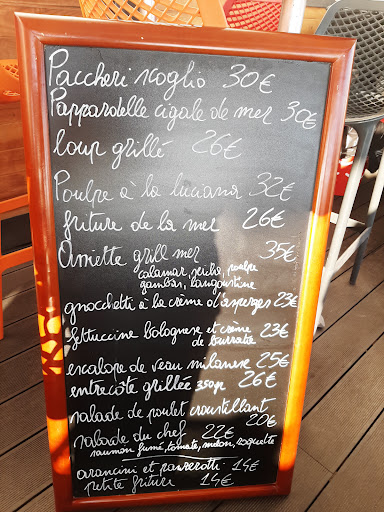 Paccheri scoglio 30€
Papparotelle cigale de mer 30€
loup grillé 26€
Poulpe à la luciana 32€
friture de la mer 26€
Assiette grill mer 35€
calamar, seiche, poulpe
gambas, langoustine
gnocchetti à la crème d'asperges 23€
fettuccine bolognese et crème 23€
de burrata
escalope de veau milanese 25€
entrecôte grillée 350gr 26€
salade de poulet croustillant
20€
salade du chef 22€
saumon fumé, tomate, melon, roquette
arancini et panzerotti 14€
petite friture 14€